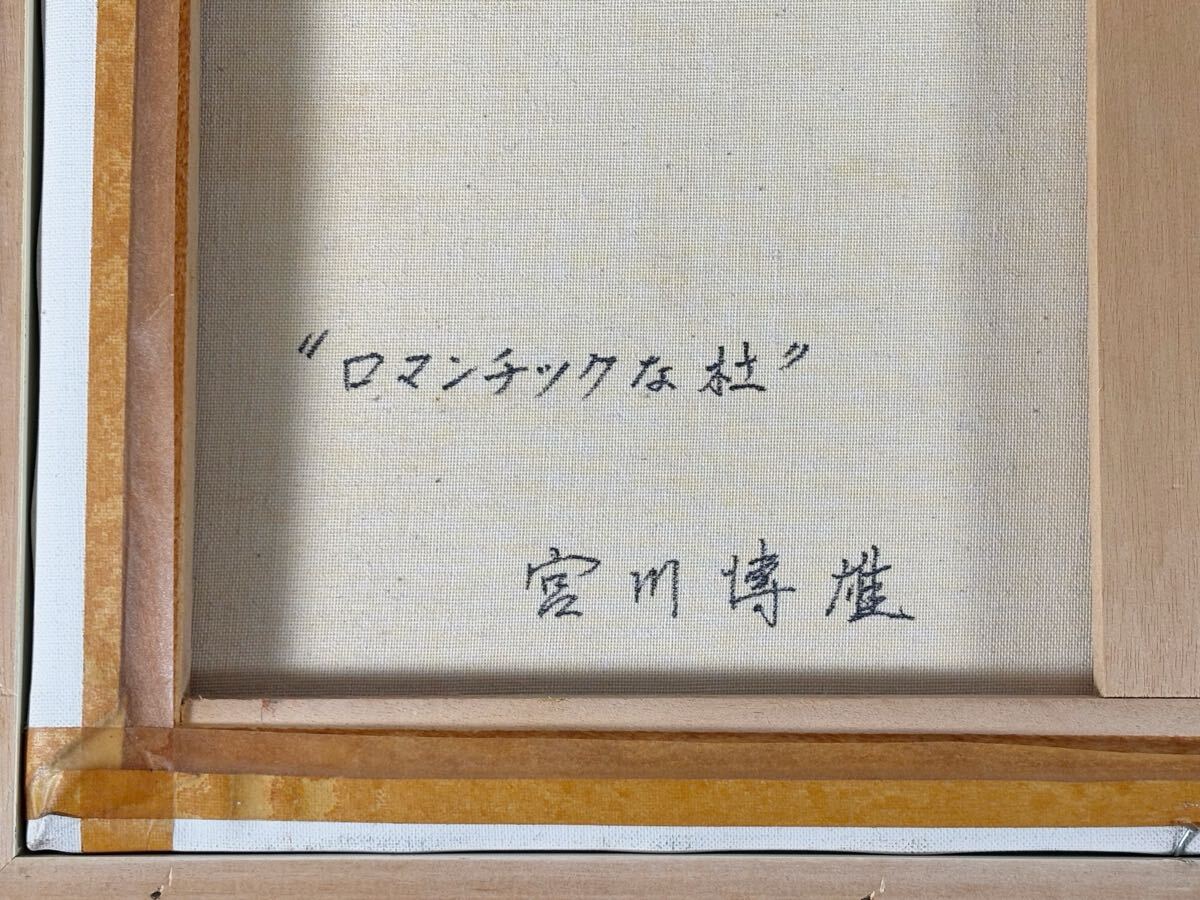 〃ロマンチックな杜〃
宮川博雄